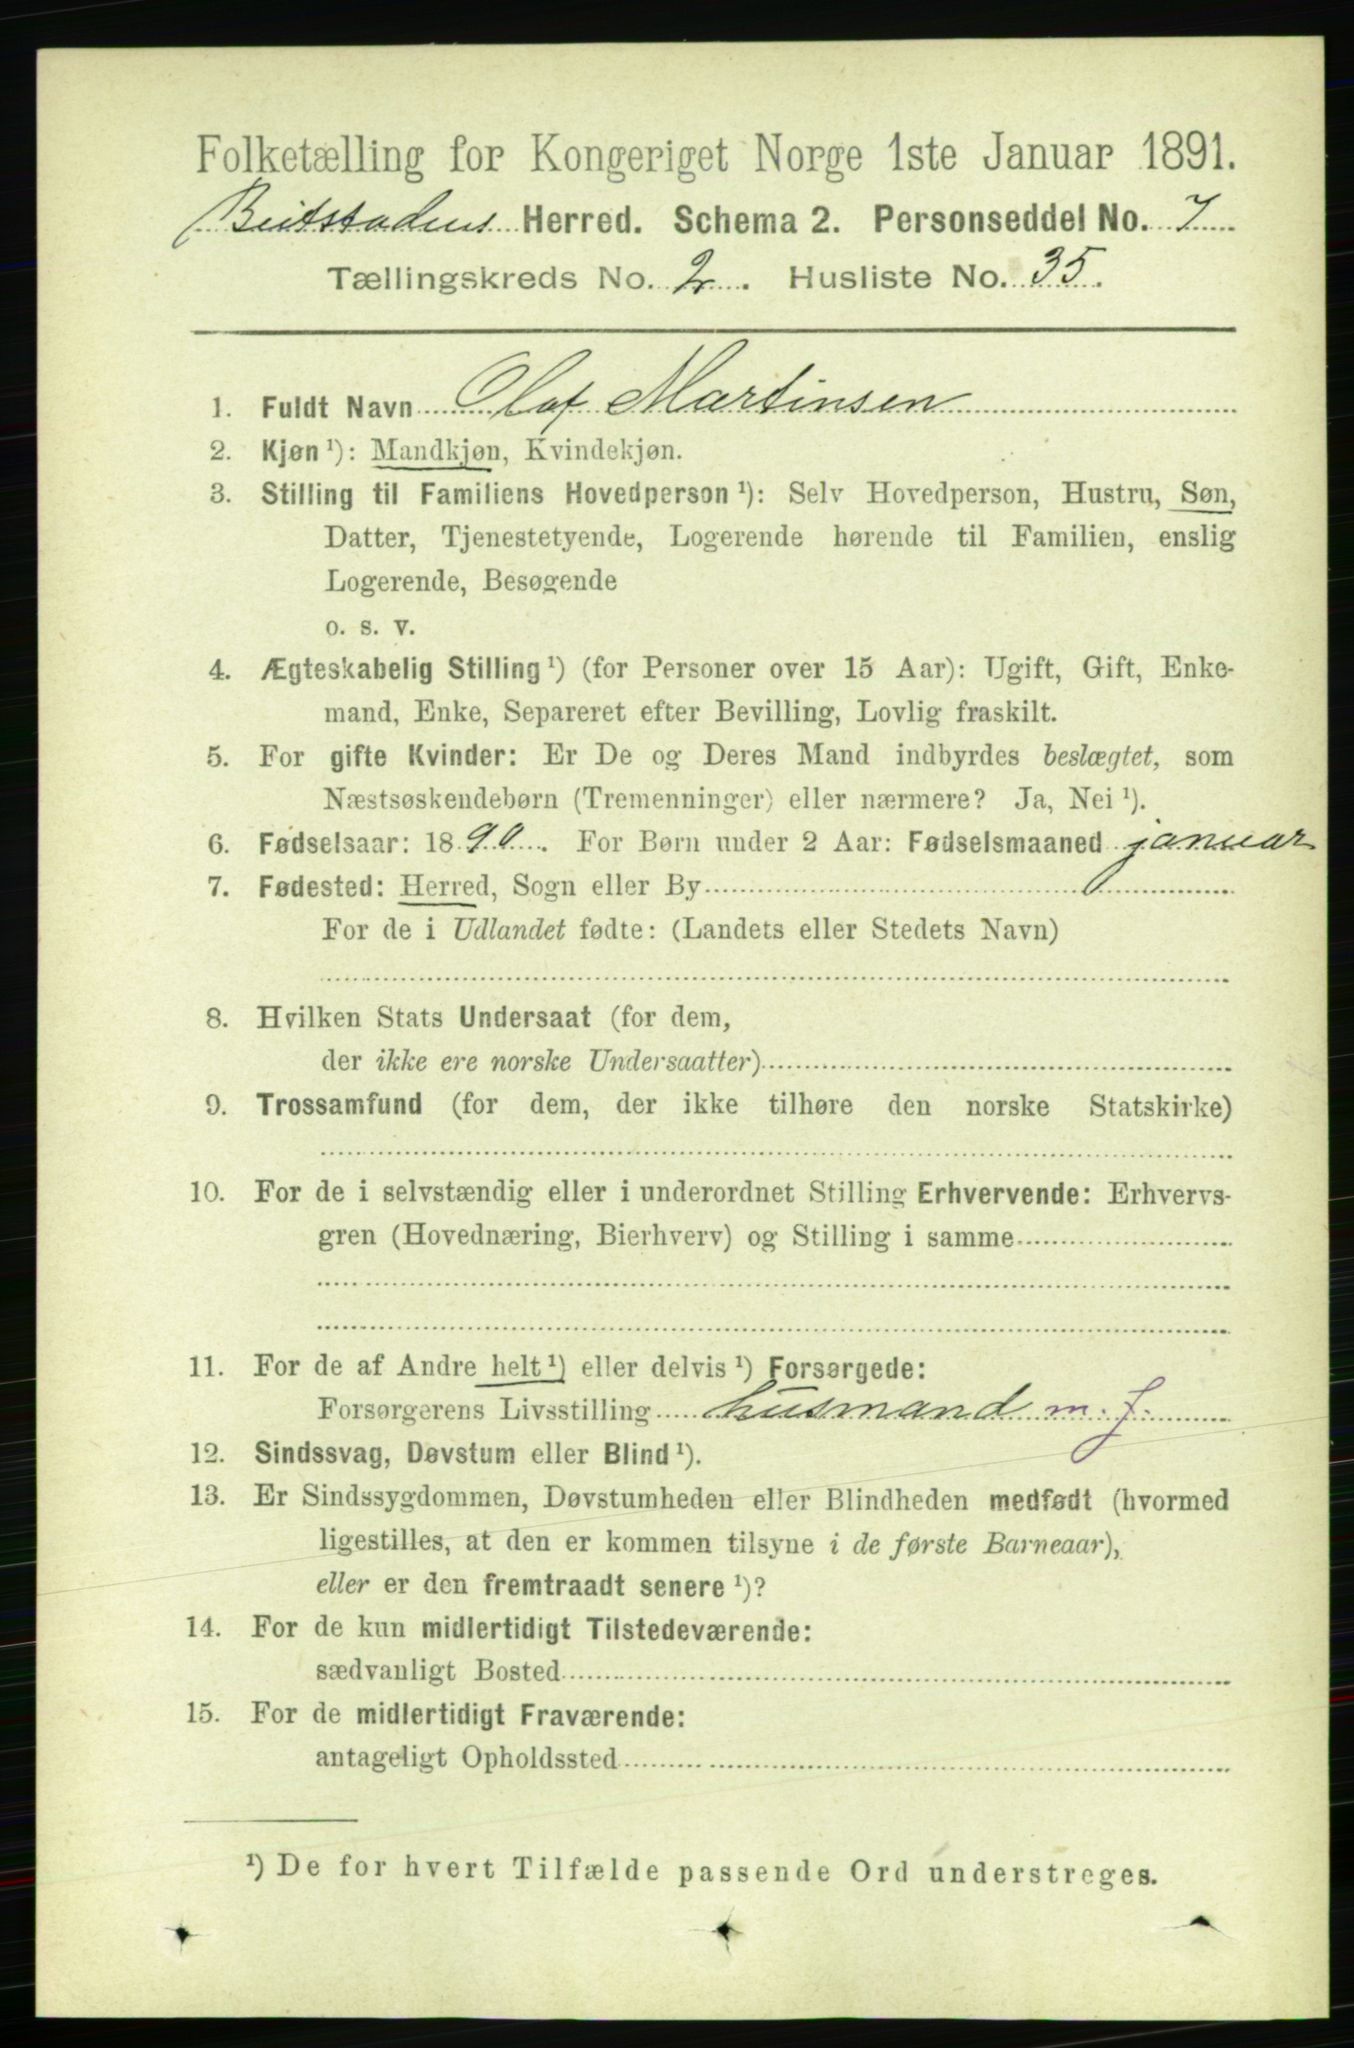 Folketælling for Kongeriget Norge 1ste Januar 1891.
Beitstadens Herred. Schema 2. Personseddel No. 7
Tællingskreds No. 2. Husliste No. 35.
1. Fuldt Navn Olaf Martinsen
2. Kjøn ¹): Mandkjøn, Kvindekjøn.
3. Stilling til Familiens Hovedperson ¹): Selv Hovedperson, Hustru, Søn,
Datter, Tjenestetyende, Logerende hørende til Familien, enslig
Logerende, Besøgende
o. s. v.
4. Ægteskabelig Stilling ¹) (for Personer over 15 Aar): Ugift, Gift, Enke-
mand, Enke, Separeret efter Bevilling, Lovlig fraskilt.
5. For gifte Kvinder: Er De og Deres Mand indbyrdes beslægtet, som
Næstsøskendebørn (Tremenninger) eller nærmere? Ja, Nei ¹).
6. Fødselsaar: 1890. For Børn under 2 Aar: Fødselsmaaned januar
7. Fødested: Herred, Sogn eller By
For de i Udlandet fødte: (Landets eller Stedets Navn)
8. Hvilken Stats Undersaat (for dem,
der ikke ere norske Undersaatter)
9. Trossamfund (for dem, der ikke tilhøre den norske Statskirke)
10. For de i selvstændig eller i underordnet Stilling Erhvervende: Erhvervs-
gren (Hovednæring, Bierhverv) og Stilling i samme
11. For de af Andre helt ¹) eller delvis ¹) Forsørgede:
Forsørgerens Livsstilling husmand m. j.
12. Sindssvag, Døvstum eller Blind ¹).
13. Er Sindssygdommen, Døvstumheden eller Blindheden medfødt (hvormed
ligestilles, at den er kommen tilsyne i de første Barneaar),
eller er den fremtraadt senere ¹)?
14. For de kun midlertidigt Tilstedeværende:
sædvanligt Bosted
15. For de midlertidigt Fraværende:
antageligt Opholdssted
¹) De for hvert Tilfælde passende Ord understreges.